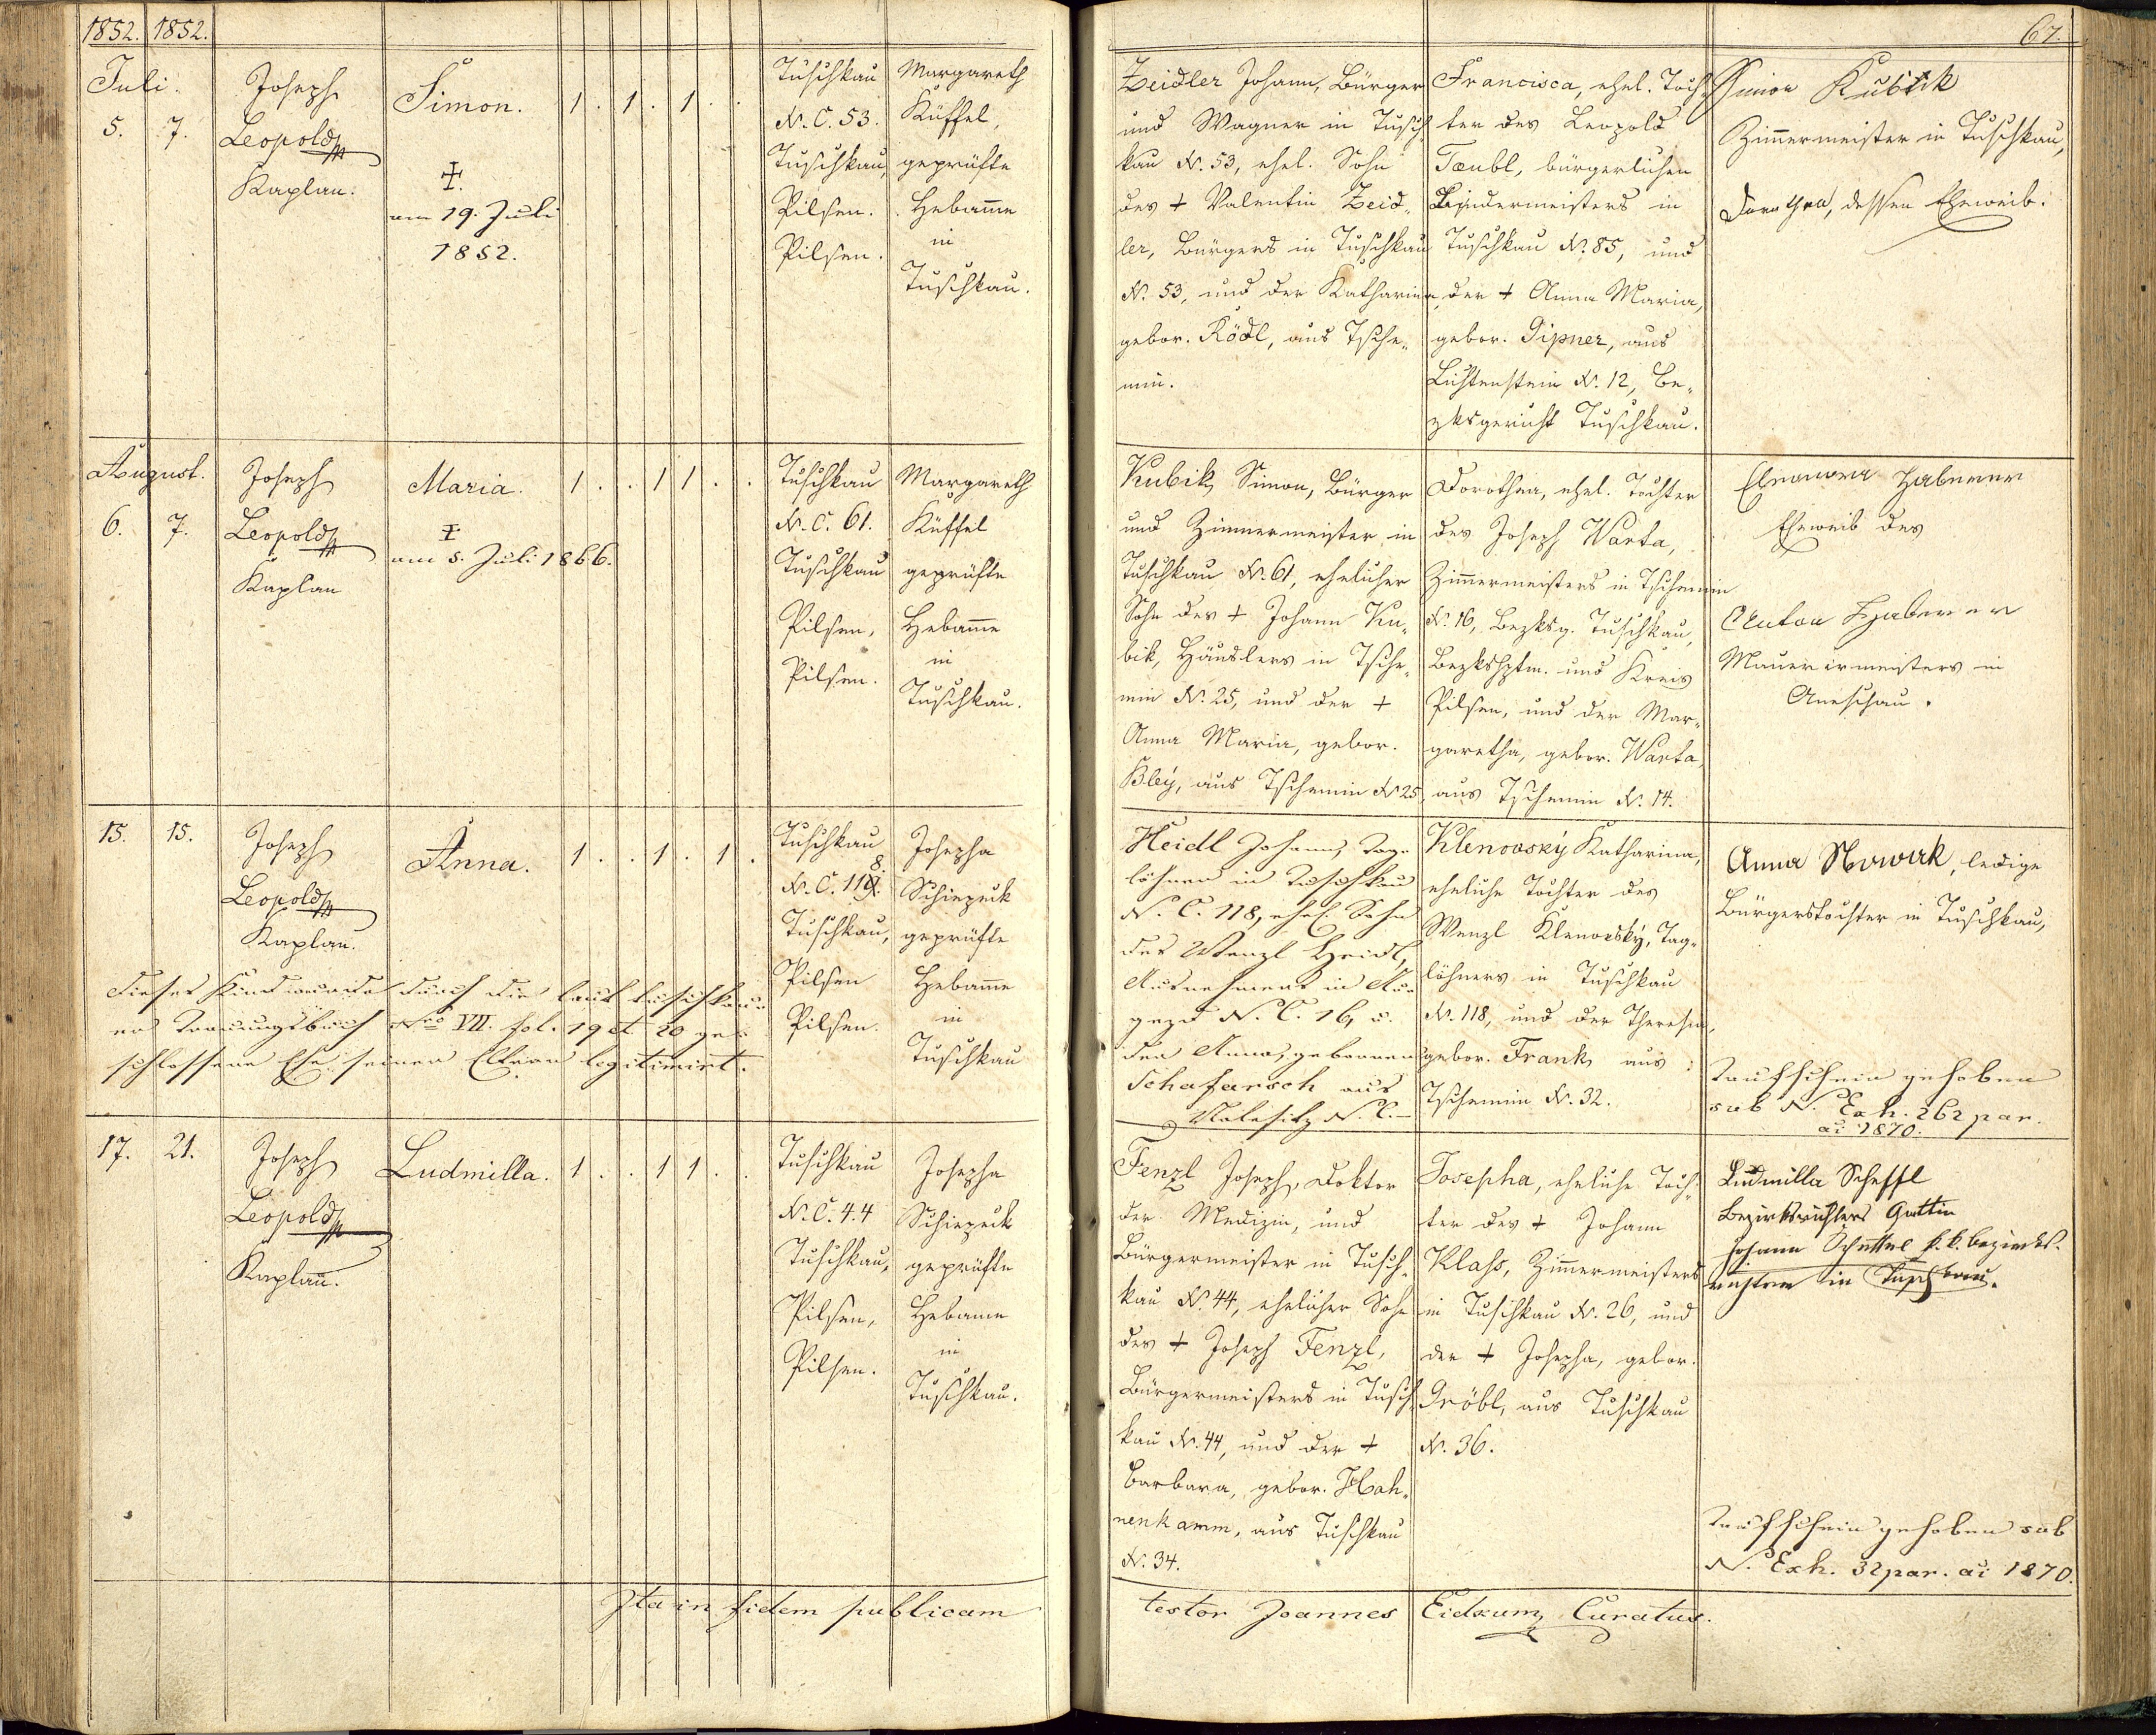 1852. 1852.
67.
Juli.
5. 7.
Joseph
Leopold
Kaplan.
Simon.
†.
am 19. Juli
1852.
1 . 1 . 1 . .
Tuschkau
N. C. 53.
Tuschkau,
Pilsen.
Pilsen.
Margareth
Küffel,
geprüfte
Hebamme
in
Tuschkau.
Zeidler Johann, Bürger
und Wagner in Tusch¬
kau N. 53, ehel. Sohn
des † Valentin Zeid¬
ler, Bürgers in Tuschkau
N. 53, und der Katharina,
gebor. Rödl, aus Tsche¬
min.
Francisca, ehel. Toch¬
ter des Leopold
Tæubl, bürgerlichen
Bindermeisters in
Tuschkau N. 85, und
der † Anna Maria,
gebor. Gipner, aus
Lichtenstein N. 12, Be¬
zksgericht Tuschkau.
Simon Kubik
Zimmermeister in Tuschkau,
Dorothea, dessen Eheweib.
August.
6. 7.
Joseph
Leopold
Kaplan
Maria.
†
am 5. Juli 1866.
1 . . 1 1 . .
Tuschkau
N. C. 61.
Tuschkau
Pilsen,
Pilsen.
Margareth
Küffel
geprüfte
Hebamme
in
Tuschkau.
Kubik Simon, Bürger
und Zimmermeister in
Tuschkau N. 61, ehelicher
Sohn des † Johann Ku¬
bik, Häuslers in Tsche¬
min N. 25, und der †
Anna Maria, gebor.
Bleÿ, aus Tschemin N 25
Dorothea, ehel. Tochter
des Joseph Warta,
Zimmermeisters in Tschemin
N. 16, Bezksg. Tuschkau,
Bezkshptm. und Kreis
Pilsen, und der Mar¬
garetha, gebor. Warta,
aus Tschemin N. 14.
Eleonora Haberer
Eheweib des
Anton Haberer
Maurermeisters in
15. 15.
Joseph
Leopold
Kaplan.
Anna.
1 . . 1 . 1 .
Tuschkau
8.
N. C. 119.
Tuschkau,
Pilsen
Pilsen.
Josepha
Schiezeck
geprüfte
Hebamme
in
Tuschkau
Dieses Kind wurde durch die laut Tuschkau¬
er Trauungsbuch Nro VII. fol. 19 et 20 ge¬
schlossene Ehe seiner Eltern legitimirt.
Heidl Johann, Tag¬
löhner in Tuschkau
N. C. 118, ehel. Sohn
des Wenzl Heidl,
Ausnehmers in Au¬
gezd N. C. 16, u.
der Anna, geborenen
Schafarsch aus
N. C. —
Klenovský Katharina,
eheliche Tochter des
Wenzl Klenovský, Tag¬
löhners in Tuschkau
N. 118, und der Theresia,
gebor. Frank, aus
Tschemin N. 32.
Anna Nowak, ledige
Bürgerstochter in Tuschkau,
Taufschein gehoben
sub N. Exh. 262 par.
ai 1870.
17. 21.
Joseph
Leopold
Kaplan.
Ludmilla.
1 . . 1 1 . .
Tuschkau
N. C. 44
Tuschkau,
Pilsen,
Pilsen.
Josepha
Schiezeck
geprüfte
Hebamme
in
Tuschkau.
Fenzl Joseph, Doktor
der Medizin, und
Bürgermeister in Tusch¬
kau N. 44, ehelicher Sohn
des † Joseph Fenzl,
Bürgermeisters in Tusch¬
kau N. 44, und der †
Barbara, gebor. Hah¬
nenkamm, aus Tuschkau
N. 34.
Josepha, eheliche Toch¬
ter des † Johann
Klass, Zimmermeisters
in Tuschkau N. 26, und
der † Josepha, gebor.
Gröbl, aus Tuschkau
N. 36.
Ludmilla Scheffl
Bezirksrichters Gattin
Johann k. k. Bezirks¬
richter in Tuschkau.
Taufschein gehoben sub
N. Exh. 32 par. ai 1870.
Ita in fidem publicam
testor Joannes Curatus.